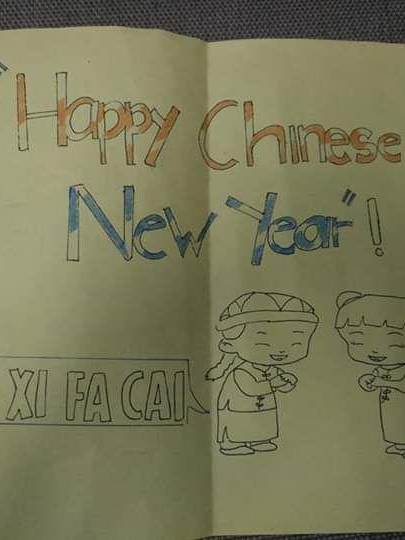 "Happy Chinese
New Year"!
XI FA CAI